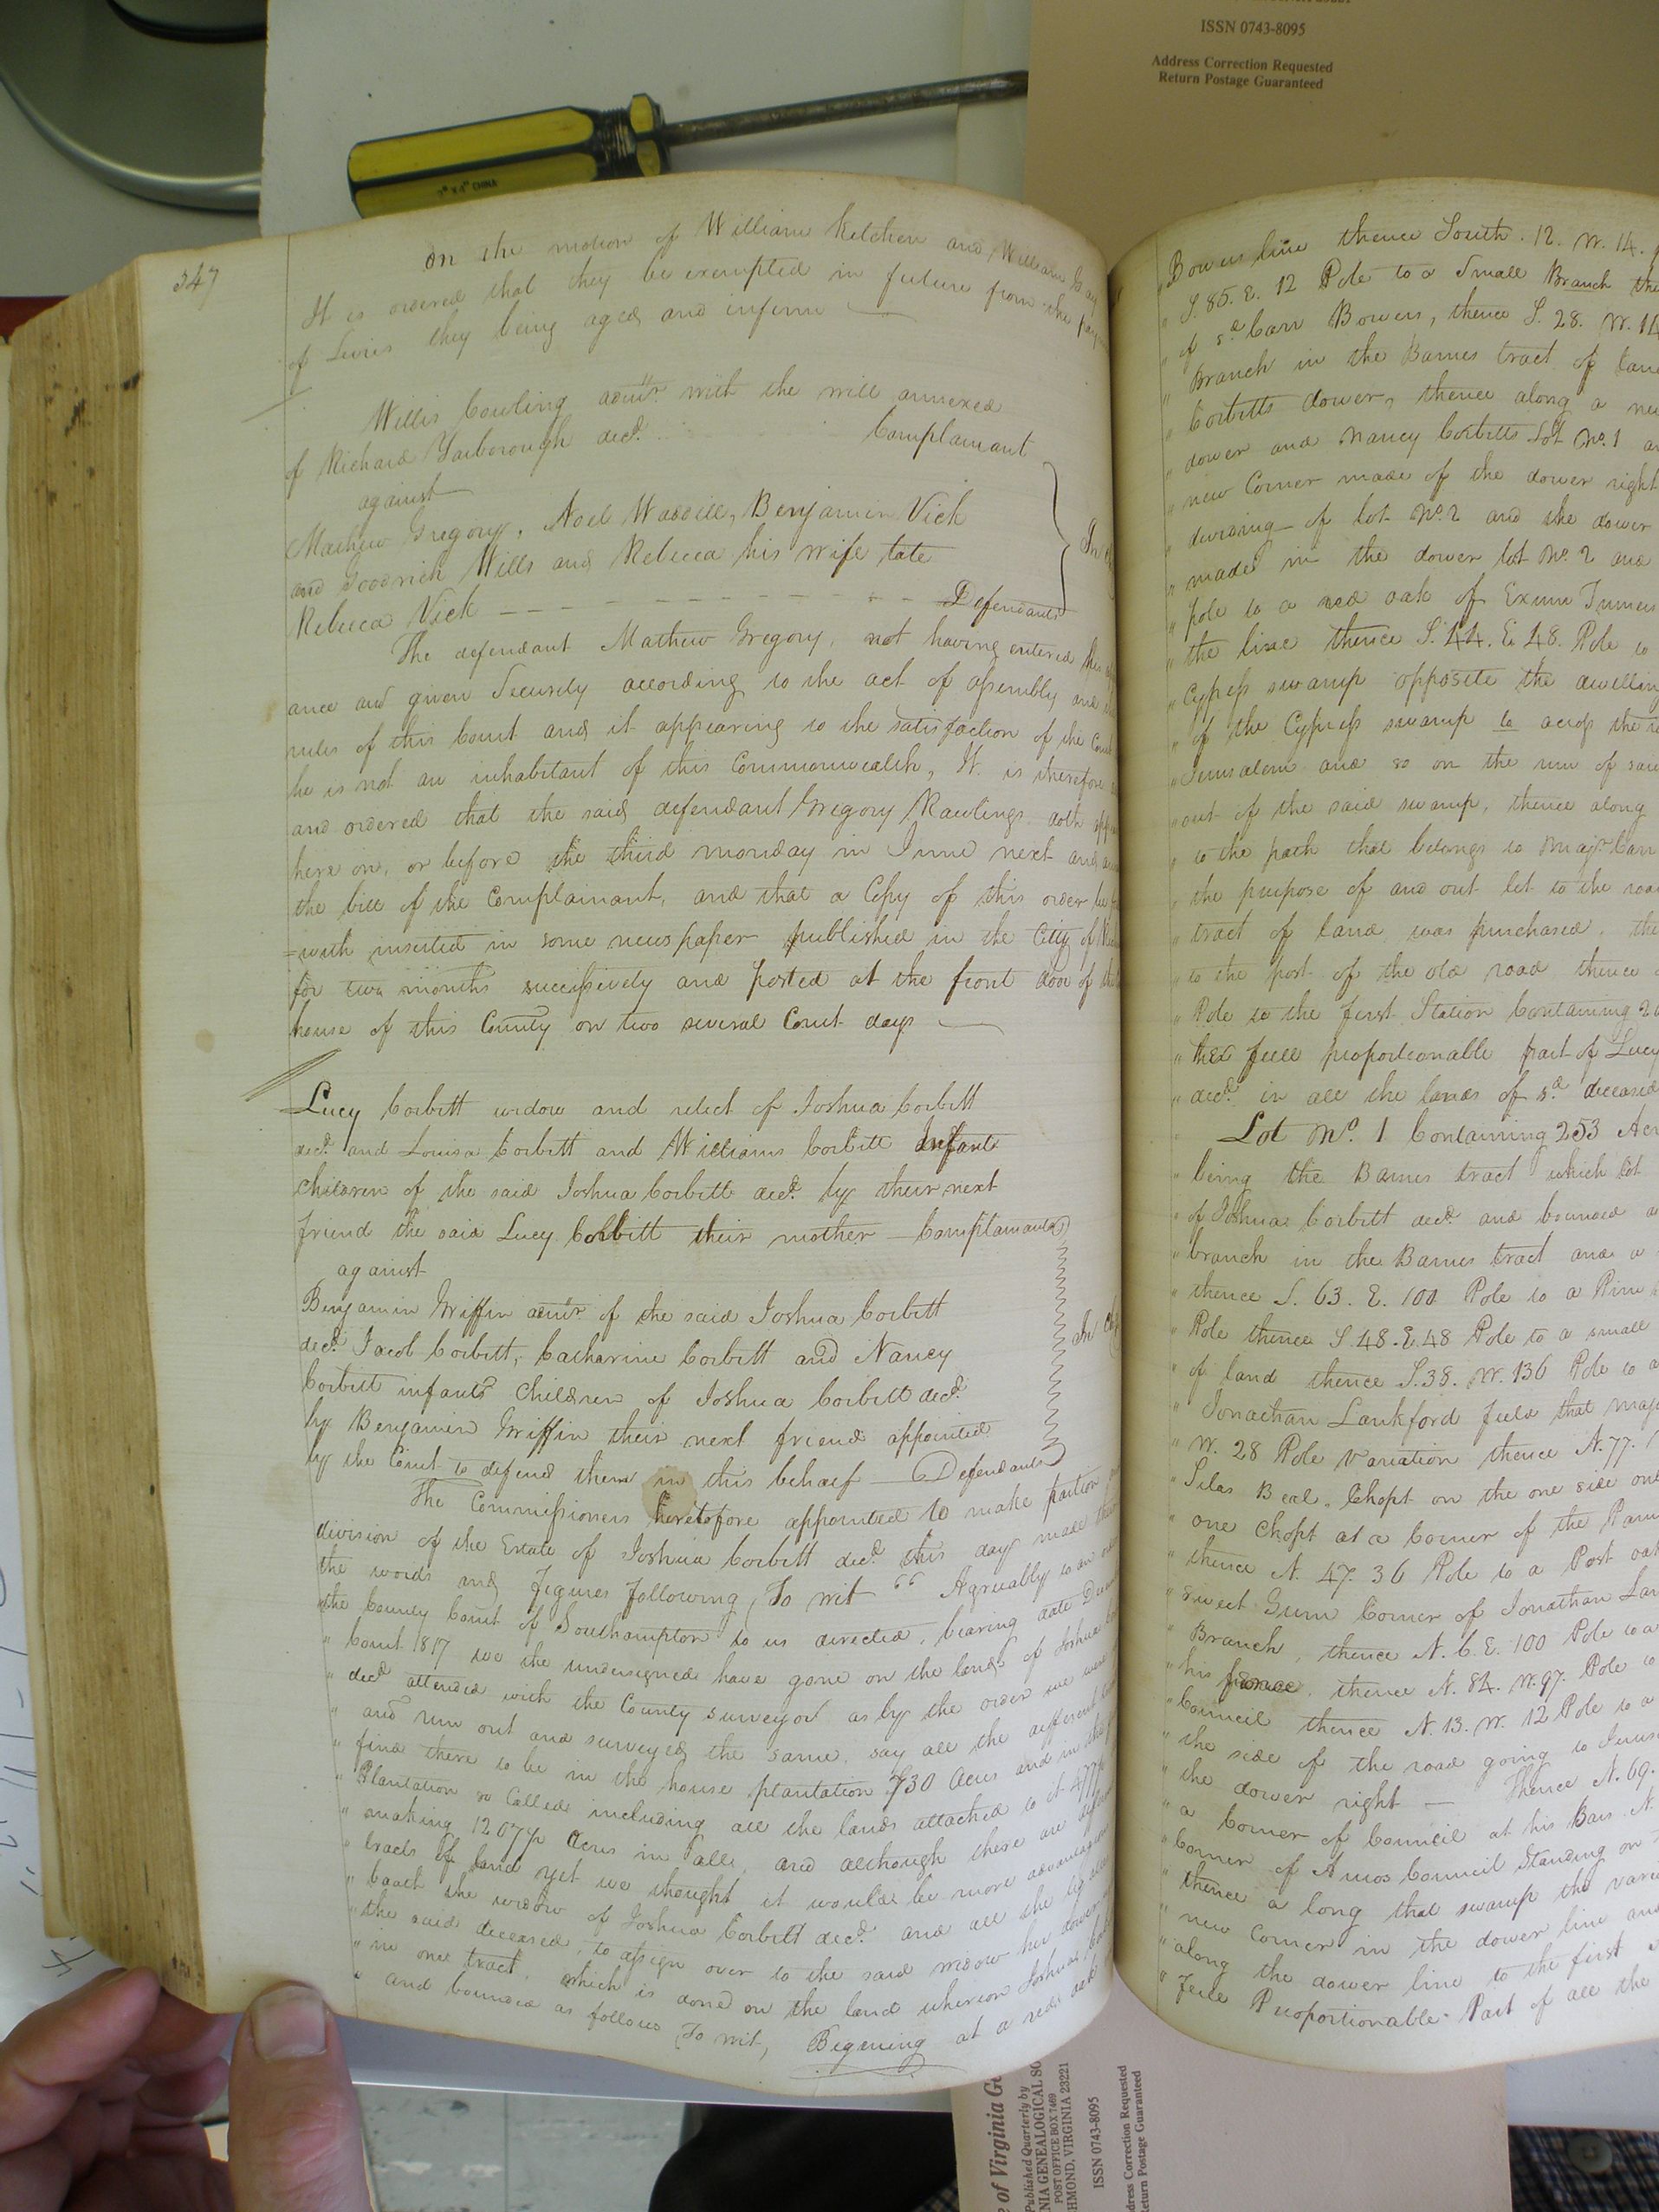 ISSN 0743-8095
Address Correction Requested
Return Postage Guaranteed
347
On the motion of William Kitchen and William Gray
It is ordered that they be exempted in future from the
of Levies they being aged and infirm
Willis Cowling admr. with the will annexed
of Richard Yarborough decd.
Complainant
against
Mathew Gregory, Noel Waddill, Benjamin Vick
and Goodrich Wills and Rebecca his wife late
Rebecca Vick
Defendants
In
The defendant Mathew Gregory, not having entered
ance and given Security according to the act of assembly and
rules of this Court and it appearing to the satisfaction of the
he is not an inhabitant of this Commonwealth, It is therefore
and ordered that the said defendant Gregory Rawlings doth
here on, or before the third monday in June next and
the bill of the Complainant, and that a Copy of this order be
=with inserted in some news paper published in the City of
for two months successively and posted at the front door of
house of this County on two several Court days
Lucy Corbitt widow and relict of Joshua Corbitt
decd. and Louisa Corbitt and Williams Corbitt Infants
Children of the said Joshua Corbitt decd. by their next
friend the said Lucy Corbitt their mother — Complainants
against
Benjamin Griffin admr. of the said Joshua Corbitt
decd. Jacob Corbitt, Catharine Corbitt and Nancy
Corbitt infants Children of Joshua Corbitt decd.
by Benjamin Griffin their next friend appointed
by the Court to defend them in this behalf — Defendants
In
The Commissioners heretofore appointed to make partion
division of the Estate of Joshua Corbitt decd. this day made
the words and figures following, To wit "Agreeably to an
"the County Court of Southampton to us directed, bearing date
" Court 1817 we the undersigned have gone on the lands of Joshua
" decd. attended with the County surveyor as by the order we were
" and run out and surveyed the same, say all the different
" find there to be in the house plantation 730 Acres and in
" Plantation so Called including all the lands attached to it
" making 1207½ Acres in all, and although there are
" tracts of land yet we thought it would be more
" the widow of Joshua Corbitt decd. and all the
" the said deceased, to assign over to the said widow her dower
" in one tract, which is done on the land whereon Joshua
" and bounded as follows To wit, Begening at a red oak
Bowers line thence South. 12. W. 14.
" S. 85. E. 12 Pole to a Small Branch
" of sd. Carr Bowers, thence S. 28. W.
" Branch in the Barnes tract of
" Corbitts dower, thence along a
" dower and Nancy Corbitts Lot No. 1
" new Corner made of the dower right
" dividing of lot No. 2 and the dower
" made in the dower lot No. 2 and
" pole to a red oak of Exum
" the line thence S. 44. E. 48. Pole to
" Cypress swamp opposite the dwelling
" of the Cypress swamp to across the
" Jerusalem and so on the run of said
" out of the said swamp, thence along
" to the path that belongs to Majr. Carr
" the purpose of and out let to the road
" tract of land was purchased, the
" to the post of the old road thence
" Pole to the first Station Containing
" the full proportionable part of Lucy
" decd. in all the lands of sd. deceased
" Lot No. 1 Containing 253
" being the Barnes tract which lot
" of Joshua Corbitt decd. and bounded
" branch in the Barnes tract and a
" thence S. 63. E. 100 Pole to a
" Pole thence S. 48. E. 48 Pole to a small
" of land thence S. 38. W. 136 Pole to a
" Jonathan Lankford field that
" W. 28 Pole Variation thence N. 77.
" Silas Beal. Chopt on the one side
" one Chopt at a Corner of the
" thence N. 47. 36 Pole to a Post oak
" sweet Gum Corner of Jonathan
" Branch, thence N. 6. E. 100 Pole to a
" his fence, thence N. 84. W. 97. Pole to
" Council thence N. 13. W. 12 Pole to a
" the side of the road going to
" the dower right — Thence N. 69.
" a Corner of Council at his Bars N.
" Corner of Amos Council Standing on
" thence a long that swamp the
" new Corner in the dower line and
" along the dower line to the first
" full Proportionable Part of all the
of Virginia
Published Quarterly by
POST OFFICE BOX 7469
ISSN 0743-8095